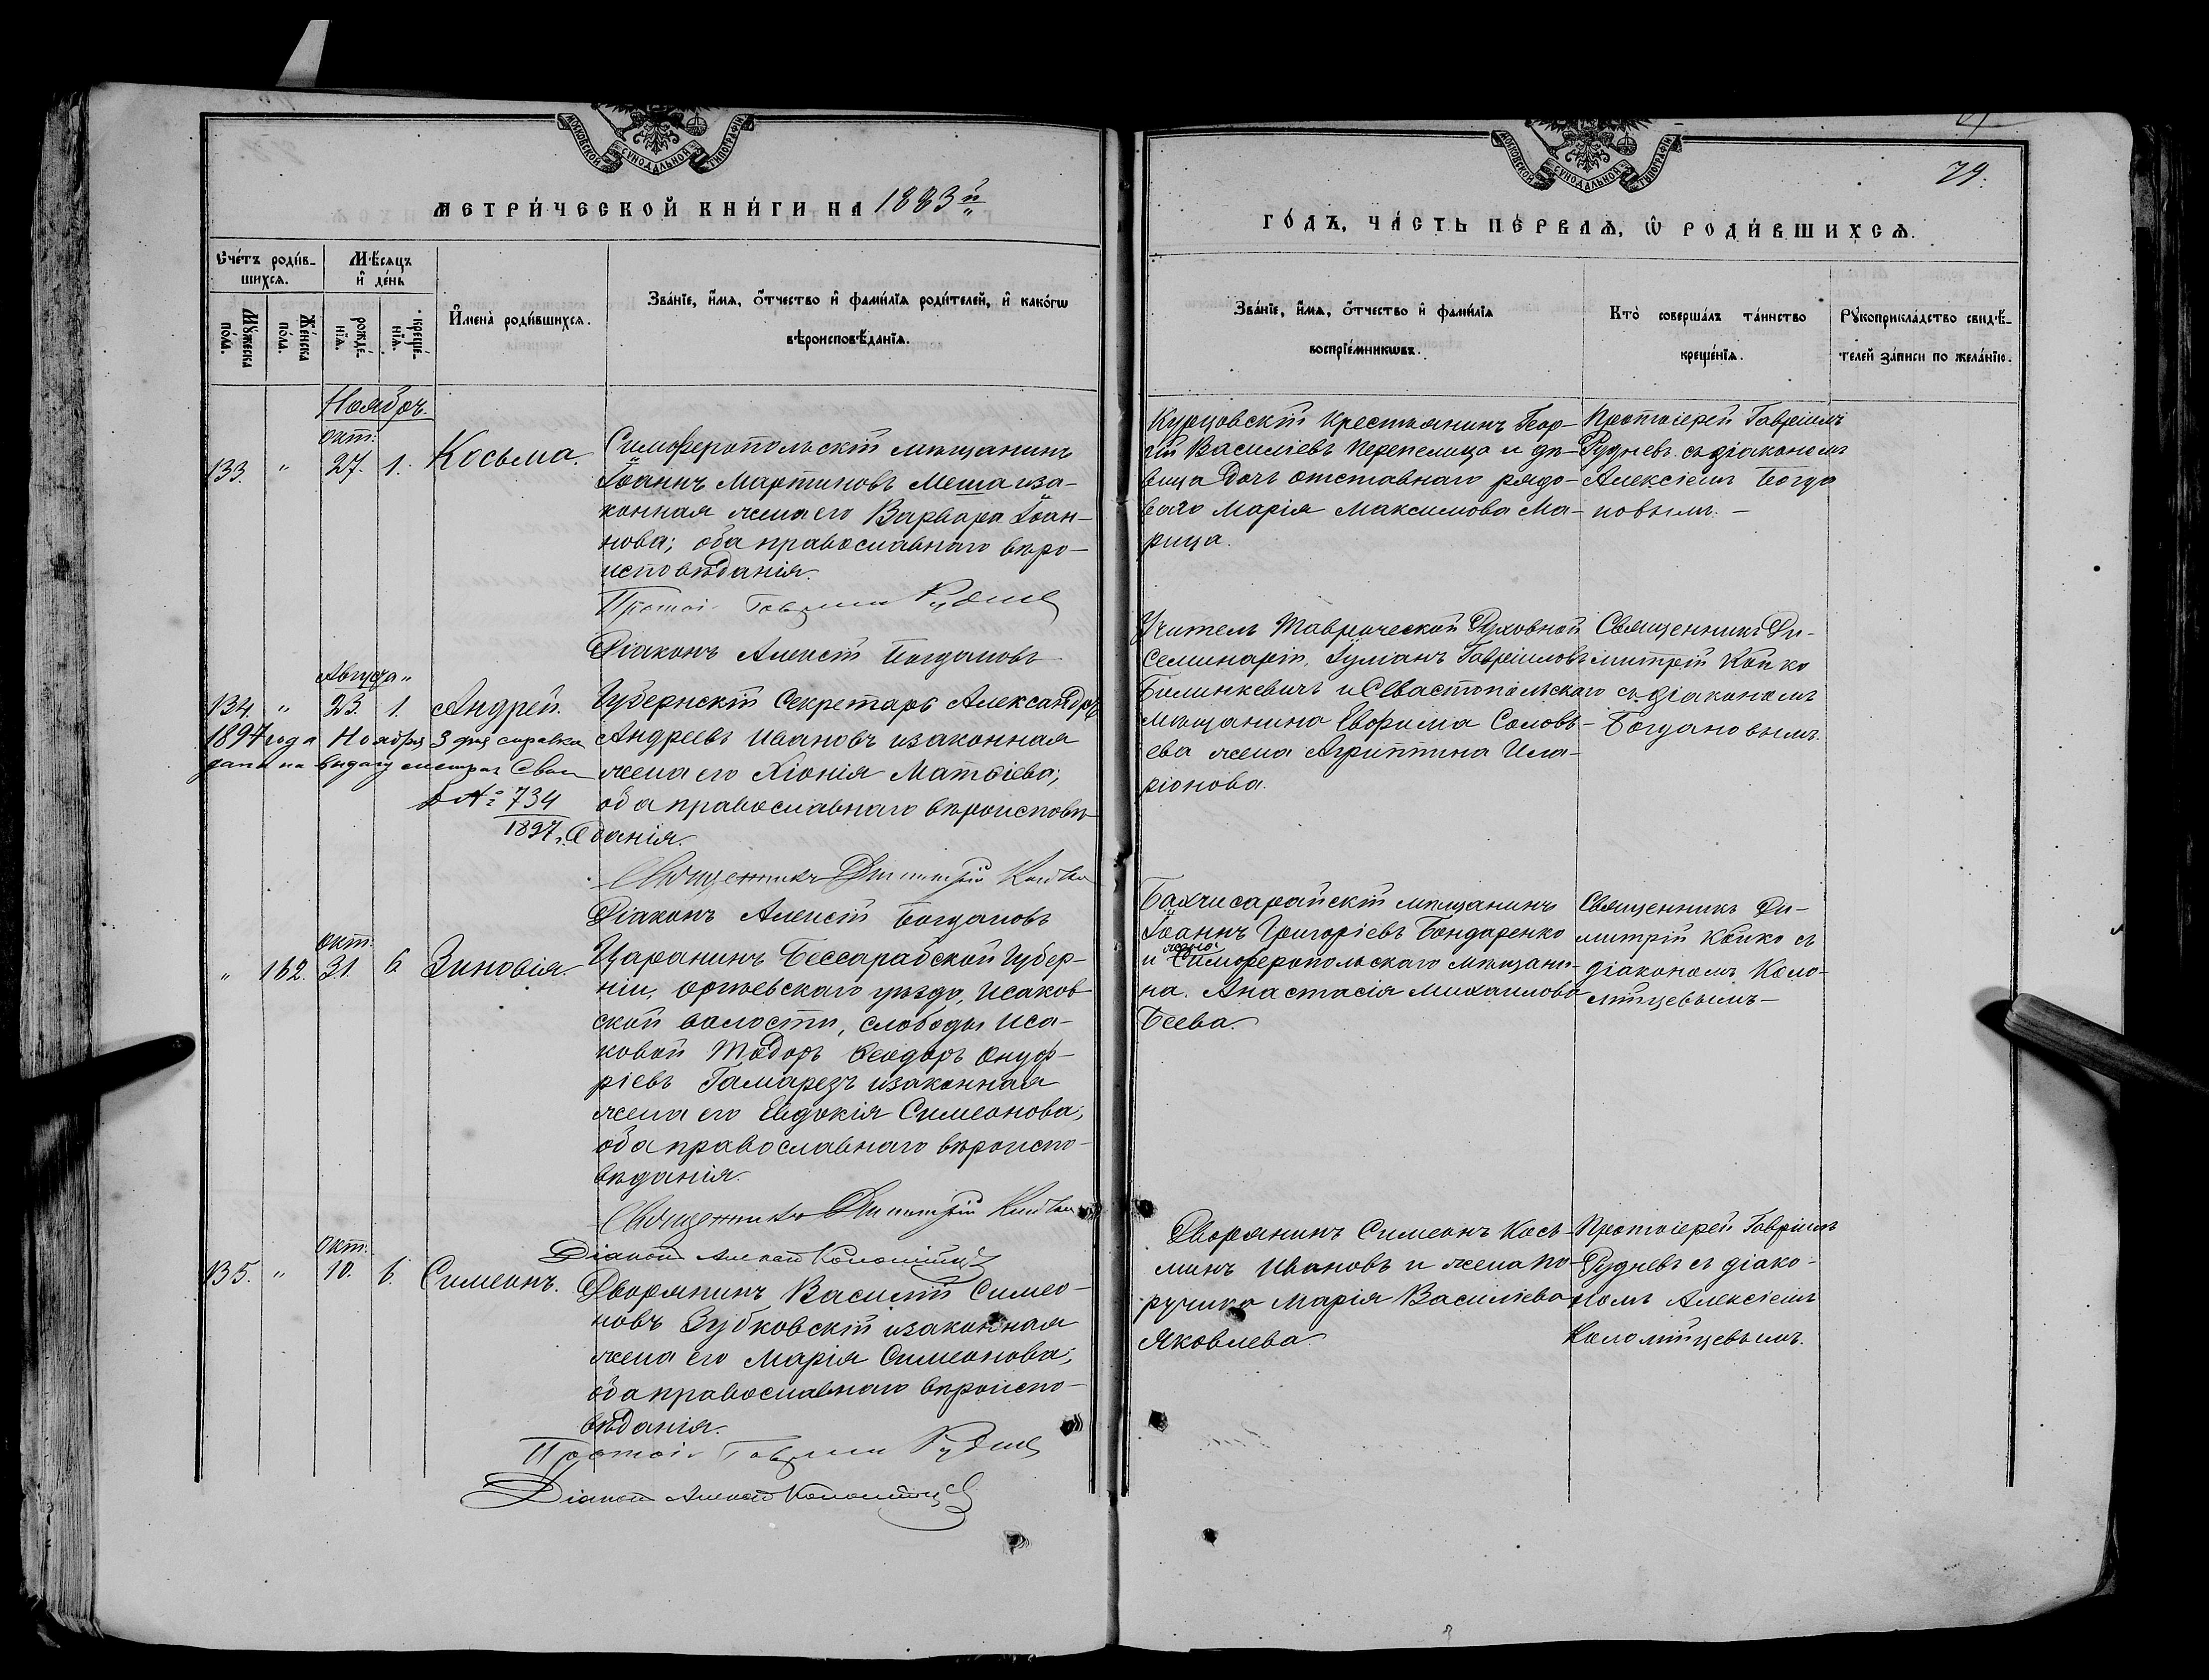 МОСКОВСКОЙ СѴНОДАЛЬНОЙ ТИПОГРАФІИ
МЕТРИ́ЧЕСКОЙ КНИ́ГИ НА 1883й
Сче́тъ роди́в-
шихсѧ.
Мѣ́сяцъ
и҆ де́нь
Мꙋ́жеска
по́ла.
Же́нска
по́ла.
рожде́-
нїѧ.
креще́-
нїѧ.
И҆мена̀ роди́вшихсѧ.
Зва́нїе, и҆́мѧ, ѻ҆́тчество и҆ фами́лїѧ роди́телей, и҆ како́гѡ
вѣроисповѣ́данїѧ.
Ноябрь.
окт:
133. " 27. 1. Косьма.
Симферопольскій мѣщанинъ
Іоаннъ Мартиновъ Меша и за-
конная жена его Варвара Іоан-
нова; оба православнаго вѣро-
исповѣданія.
Протоі. Гавріилъ Рудневъ
Діаконъ Алексій Богдановъ
Августа
134. " 23. 1. Андрей.
1897 года Ноября 3 дня справка
дана на выдачу метрич. Свид.
№ 734
1897 г.
Губернскій Секретарь Александръ
Андреевъ Ивановъ и законная
жена его Хіонія Матѳіева;
оба православнаго вѣроисповѣ-
данія.
Священникъ Димитрій Койко
Діаконъ Алексій Богдановъ
окт:
" 162. 31. 6 Зиновія.
Царанинъ Бессарабской Губер-
ніи, Оргѣевскаго уѣзда, Исаков-
ской волости, слободы Иса-
ковой Тодоръ Ѳеодоръ Онуф-
ріевъ Гамарезъ и законная
жена его Евдокія Симеонова;
оба православнаго вѣроиспо-
вѣданія.
Священникъ Димитрій Койко
Діаконъ Алексій Коломійцевъ
Окт:
135. " 10. 6. Симеонъ.
Дворянинъ Василій Симео-
новъ Зубковскій и законная
жена его Марія Симеонова;
оба православнаго вѣроиспо-
вѣданія.
Протоі. Гавріилъ Рудневъ
Діаконъ Алексій Коломійцевъ
МОСКОВСКОЙ СѴНОДАЛЬНОЙ ТИПОГРАФІИ
79.
ГО́ДЪ, ЧА́СТЬ ПЕ́РВАѦ, Ѡ҆ РОДИ́ВШИХСѦ.
Зва́нїе, и҆́мѧ, ѻ҆́тчество и҆ фами́лїѧ
воспрїе́мникѡвъ.
Кто̀ соверша́лъ та́инство
креще́нїѧ.
Рꙋкоприкла́дство свидѣ́-
телей за́писи по жела́нїю.
Курцовскій крестьянинъ Геор-
гій Василіевъ Перепелица и дѣ-
вица дочь отставнаго рядо-
ваго Марія Максимова Ма-
рица.
Протоіерей Гавріилъ
Рудневъ съ діакономъ
Алексіемъ Богда
новымъ. –
Учитель Таврической Духовной
Семинаріи, Іуліанъ Гавріиловъ
Билинкевичъ и Севастопольскаго
мѣщанина Евфима Соловь-
ева жена Агриппина Ила-
ріонова.
Священникъ Ди-
митрій Койко
съ діакономъ
Богдановымъ.
Бахчисарайскій мѣщанинъ
Іоаннъ Григоріевъ Бондаренко
жена
и Симферопольскаго мѣщани-
на. Анастасія Михаилова
Беева.
Священникъ Ди-
митрій Койко съ
діакономъ Коло-
мійцевымъ –
Дворянинъ Симеонъ Кось-
минъ Ивановъ и жена по-
ручика Марія Василіева
Яковлева.
Протоіерей Гавріилъ
Рудневъ съ діако-
номъ Алексіемъ
Коломійцевымъ.